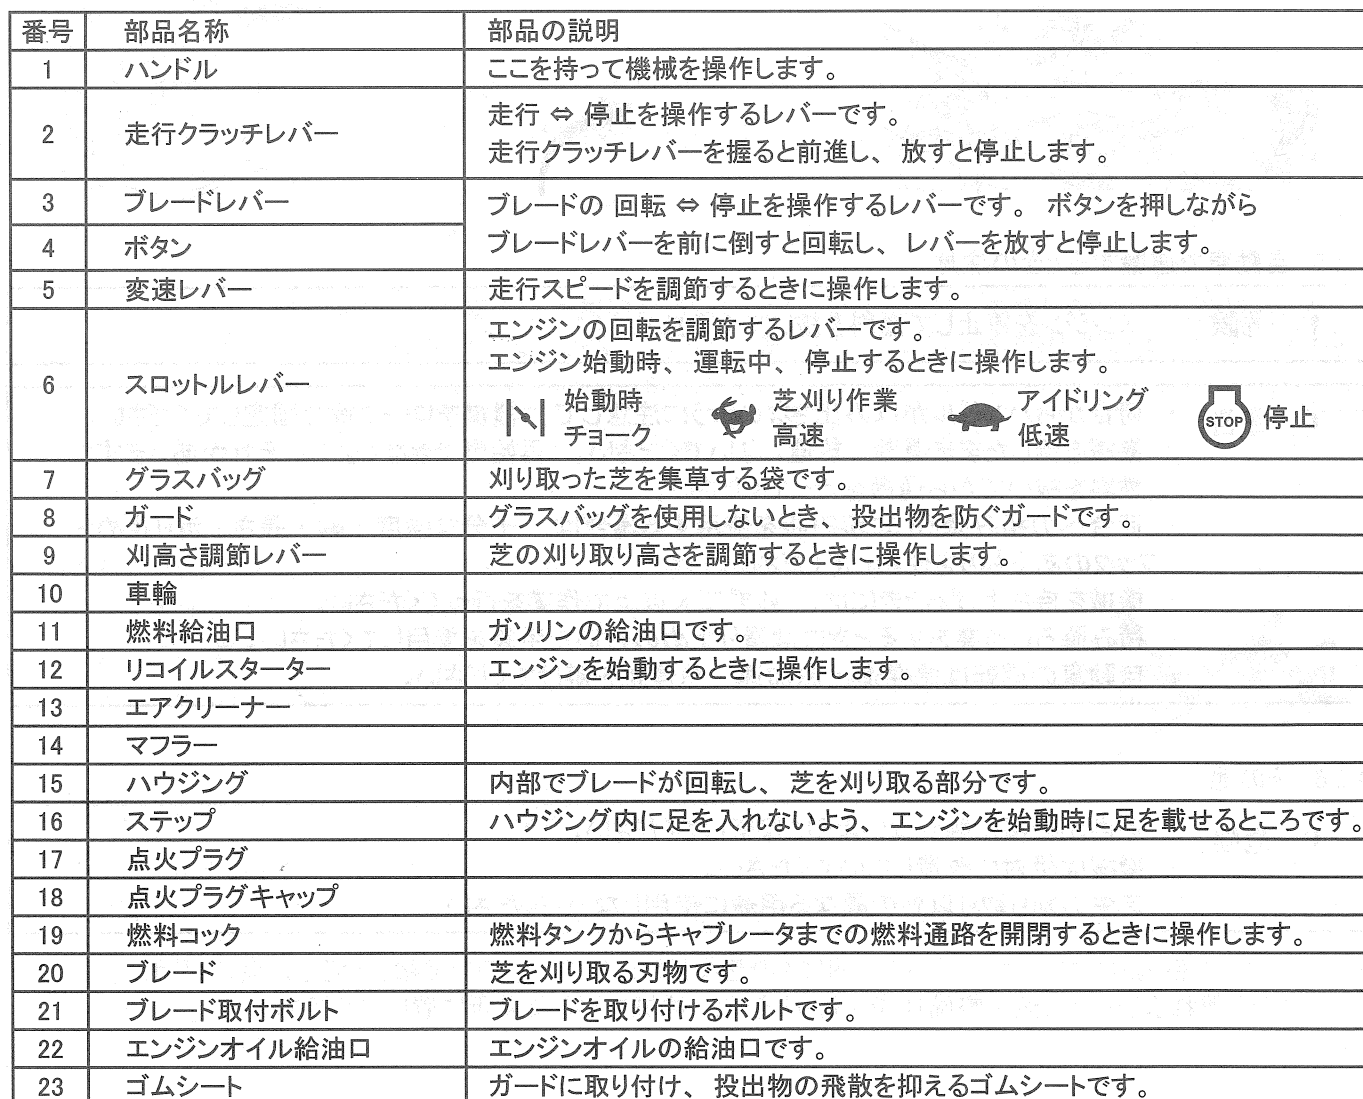 番号 部品名称 部品の説明
1 ハンドル ここを持って機械を操作します。
2 走行クラッチレバー 走行 ⇔ 停止を操作するレバーです。
走行クラッチレバーを握ると前進し、 放すと停止します。
3 ブレードレバー ブレードの 回転 ⇔ 停止を操作するレバーです。 ボタンを押しながら
4 ボタン ブレードレバーを前に倒すと回転し、 レバーを放すと停止します。
5 変速レバー 走行スピードを調節するときに操作します。
6 スロットルレバー エンジンの回転を調節するレバーです。
エンジン始動時、 運転中、 停止するときに操作します。
始動時 芝刈り作業 アイドリング STOP 停止
チョーク 高速 低速
7 グラスバッグ 刈り取った芝を集草する袋です。
8 ガード グラスバッグを使用しないとき、 投出物を防ぐガードです。
9 刈高さ調節レバー 芝の刈り取り高さを調節するときに操作します。
10 車輪
11 燃料給油口 ガソリンの給油口です。
12 リコイルスターター エンジンを始動するときに操作します。
13 エアクリーナー
14 マフラー
15 ハウジング 内部でブレードが回転し、 芝を刈り取る部分です。
16 ステップ ハウジング内に足を入れないよう、 エンジンを始動時に足を載せるところです。
17 点火プラグ
18 点火プラグキャップ
19 燃料コック 燃料タンクからキャブレータまでの燃料通路を開閉するときに操作します。
20 ブレード 芝を刈り取る刃物です。
21 ブレード取付ボルト ブレードを取り付けるボルトです。
22 エンジンオイル給油口 エンジンオイルの給油口です。
23 ゴムシート ガードに取り付け、 投出物の飛散を抑えるゴムシートです。